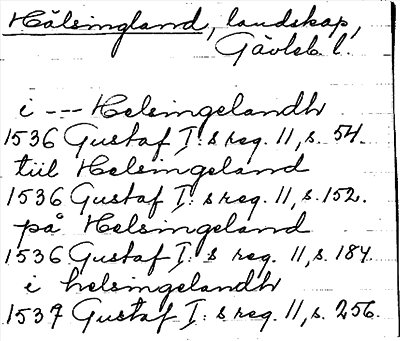 Hälsingland, landskap,
Gävleb l.
i --- Helsingelandh
1536 Gustaf I:s reg. 11, s. 54.
tiil Helsingeland
1536 Gustaf I:s reg. 11, s. 152.
på Helsingeland
1536 Gustaf I:s reg. 11, s. 184.
i helsingelandh
1537 Gustaf I:s reg. 11, s. 256.